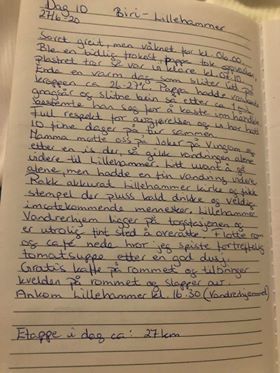 Dag 10 Biri - Lillehammer
27/6-20
Sovet greit, men våknet før kl. 06.00.
Ble en tidlig frokost, Pappa tok oppvask,
plastret tær så var vi klare kl. 07.10
Enda en varm dag som slitet litt på
kroppen ca 26-27°c. Pappa hadde
gnagsår og slitne bein så etter ca 1
bestemte han seg for å kaste inn håndkle
Full respekt for avgjørelse og vi har hatt
10 fine dager på tur sammen.
Mamma møtte oss på Joker på Vingrom og
etter en is der så gikk vandringen alene
videre til Lillehammer. Litt uvant å gå
alene, men hadde en fin vandring videre
Rakk akkurat Lillehammer kirke og fikk
stempel der pluss kald drikke og veldig
imøtekommende mennesker. Lillehammer
Vandrerhjem ligger på togstasjonen og
er utrolig fint sted å overnatte. Flotte rom
og café nede hvor jeg spiste fortreffelig
tomatsuppe etter en god dusj.
Gratis kaffe på rommet og tilbringer
kvelden på rommet og slapper av.
Ankom Lillehammer kl. 16.30 (Vandrerhjemmet)
Etappe i dag ca: 27 km